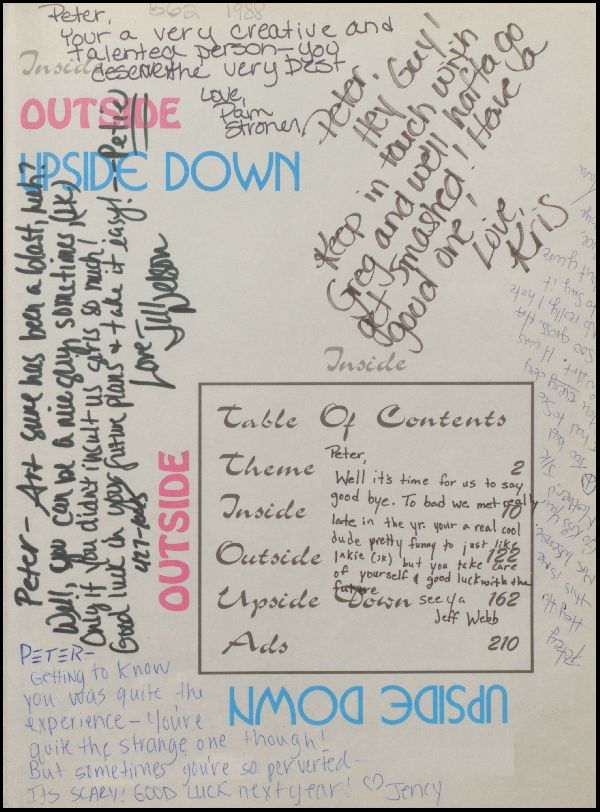 Peter, B62 1988
Your a very creative and
talented person—you
deserve the very best
Love,
Pam
Stroner
Inside
OUTSIDE
UPSIDE DOWN
Peter,
Hey Guy!
Keep in touch with
Greg and we'll hafta go
get smashed! Have a
good one!
Love,
Kris
Peter- Art sure has been a blast, huh?
Well, you can be a nice guy sometimes, (JK)
Only if you didn't insult us girls so much!
Good luck in your future plans & take it easy! -Petie
Love-
Jill Nelson
427-
Inside
OUTSIDE
Table Of Contents
Theme 2
Inside 10
Outside 122
Upside Down 162
Ads 210
Peter,
Well it's time for us to say
good bye. To bad we met really
late in the yr. your a real cool
dude pretty funny to just like
Jakie (JK) but you take care
of yourself & good luck with the
future
see ya
Jeff Webb
UPSIDE DOWN
PETER-
GETTING to KNOW
you was quite the
experience-You're
quite the strange one though!
But sometimes you're so perverted-
ITS SCARY! GOOD LUCK next year! ♡ Jency
Petey
Hey
this is